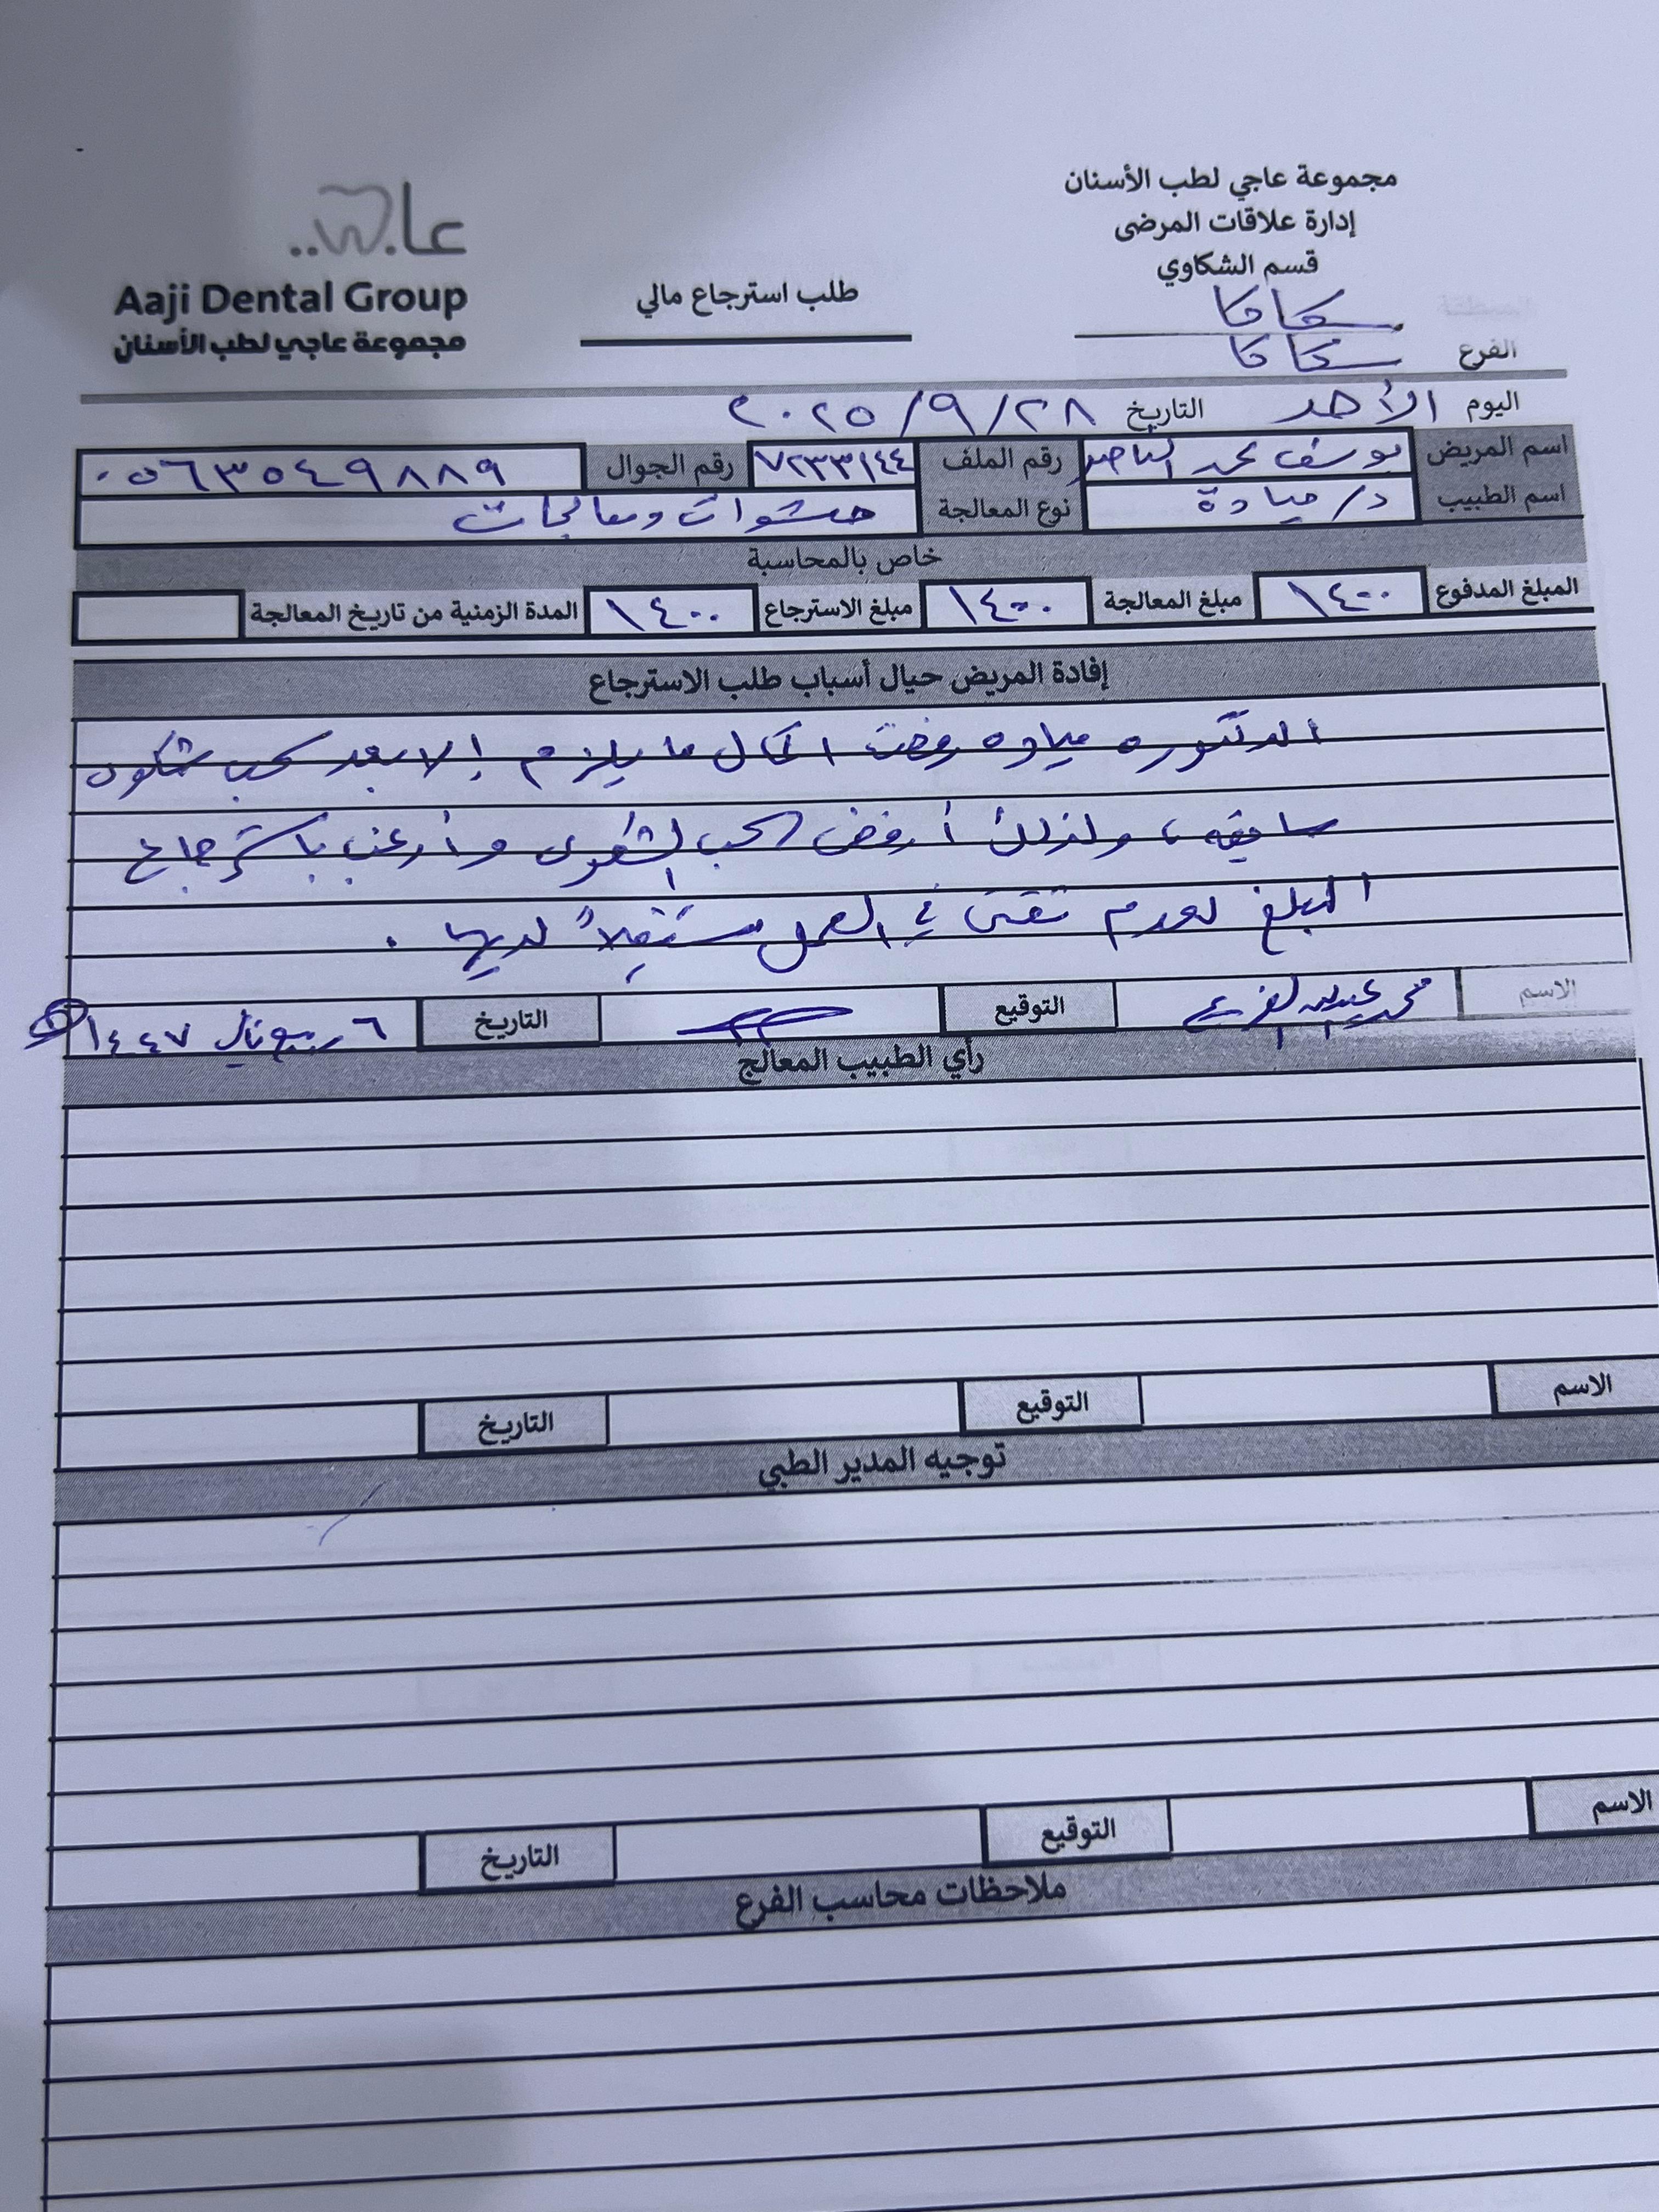 مجموعة عاجي لطب الأسنان
إدارة علاقات المرضى
قسم الشكاوي
سكاكا
الفرع سكاكا
طلب استرجاع مالي
عاجي..
Aaji Dental Group
مجموعة عاجي لطب الأسنان
اليوم الأحد التاريخ ٢٠٢٥/٩/٢٨
اسم المريض يوسف محمد رقم الملف ٧٢٣٣١٤٤ رقم الجوال ٠٥٦٣٥٤٩٨٨٩
اسم الطبيب د/ ميادة نوع المعالجة حشوات ومعالجات
خاص بالمحاسبة
المبلغ المدفوع ١٤٠٠ مبلغ المعالجة ١٤٠٠ مبلغ الاسترجاع ١٤٠٠ المدة الزمنية من تاريخ المعالجة
إفادة المريض حيال أسباب طلب الاسترجاع
الدكتوره مياده رفضت اكمال ما يلزم إلا بعد سحب شكوى
سابقه، ولذلك أرفض سحب الشكوى وأرغب باسترجاع
المبلغ لعدم ثقتي في العمل مستقبلاً لديها.
الاسم محمد عبدالله التوقيع التاريخ ٦ ربيع ثاني ١٤٤٧
رأي الطبيب المعالج
الاسم التوقيع التاريخ
توجيه المدير الطبي
الاسم التوقيع التاريخ
ملاحظات محاسب الفرع